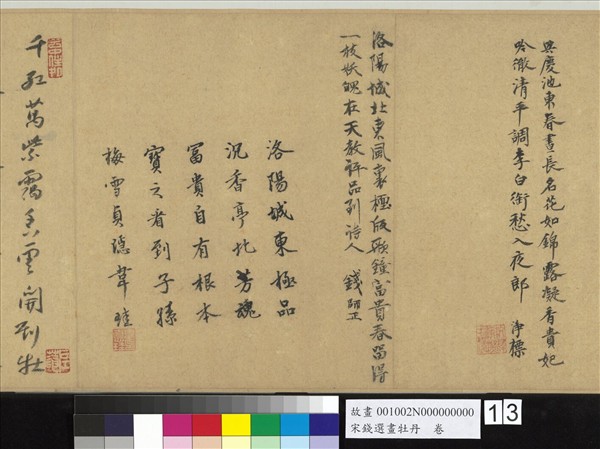 興慶池東春晝長名花如錦露凝香貴妃
吟徹清平調李白銜愁入夜郎 淨標
洛陽城北東風裏極頋鍾富貴春留得
一枝妖魄在天教評品到詩人 錢師正
洛陽城東極品
沉香亭北芳魂
富貴自有根本
寶之者到子孫
梅雪貞隱韋珪
千紅萬紫靄香雲開到牡
故畫 001002N000000000
宋錢選畫牡丹 卷
13